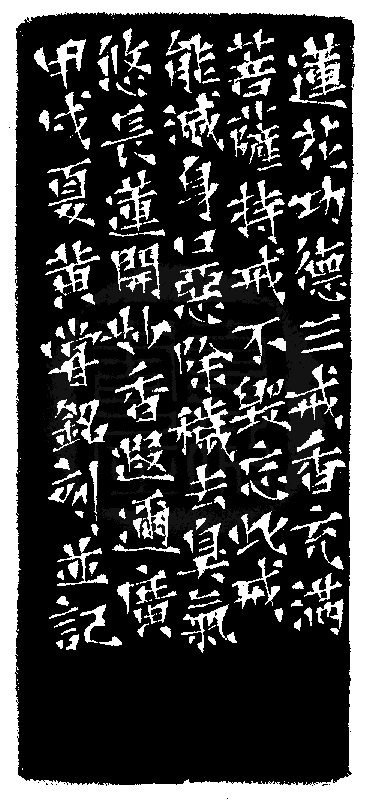 蓮花功德三戒香充滿
菩薩持戒不毀忘此戒
能滅身口惡除穢去臭氣
悠長蓮開妙香遐邇廣
甲戌夏黄嘗銘刻並記